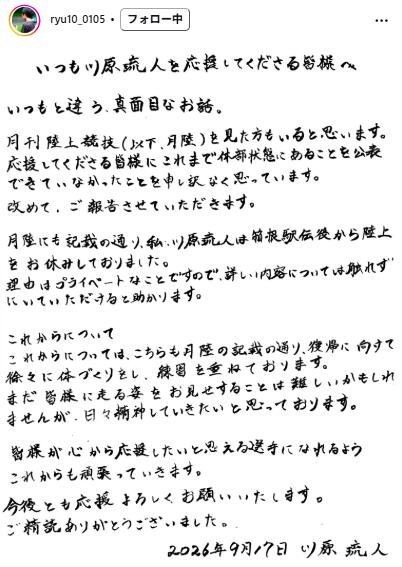 ryu10_0105 • フォロー中
いつも川原琉人を応援してくださる皆様へ
いつもと違う、真面目なお話。
月刊陸上競技(以下、月陸)を見た方もいると思います。
応援してくださる皆様にこれまで休部状態にあることを公表
できていなかったことを申し訳なく思っています。
改めて、ご報告させていただきます。
月陸にも記載の通り、私、川原琉人は箱根駅伝後から陸上
をお休みしておりました。
理由はプライベートなことですので、詳しい内容については触れず
にいていただけると助かります。
これからについて
これからについては、こちらも月陸の記載の通り、復帰に向けて
徐々に体づくりをし、練習を重ねております。
まだ皆様に走る姿をお見せすることは難しいかもしれ
ませんが、日々精神していきたいと思っております。
皆様が心から応援したいと思える選手になれるよう
これからも頑張っていきます。
今後とも応援よろしくお願いいたします。
ご精読ありがとうございました。
2026年9月17日 川原 琉人